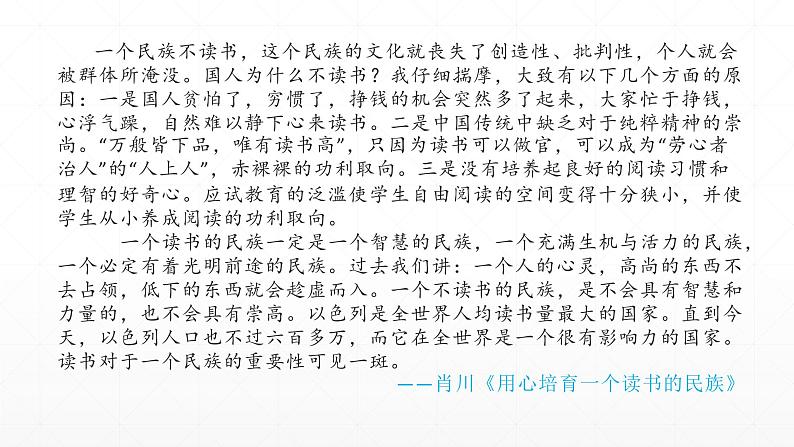 一个民族不读书，这个民族的文化就丧失了创造性、批判性，个人就会
被群体所淹没。国人为什么不读书？我仔细揣摩，大致有以下几个方面的原
因：一是国人贫怕了，穷惯了，挣钱的机会突然多了起来，大家忙于挣钱，
心浮气躁，自然难以静下心来读书。二是中国传统中缺乏对于纯粹精神的崇
尚。“万般皆下品，唯有读书高”，只因为读书可以做官，可以成为“劳心者
治人”的“人上人”，赤裸裸的功利取向。三是没有培养起良好的阅读习惯和
理智的好奇心。应试教育的泛滥使学生自由阅读的空间变得十分狭小，并使
学生从小养成阅读的功利取向。
一个读书的民族一定是一个智慧的民族，一个充满生机与活力的民族，
一个必定有着光明前途的民族。过去我们讲：一个人的心灵，高尚的东西不
去占领，低下的东西就会趁虚而入。一个不读书的民族，是不会具有智慧和
力量的，也不会具有崇高。以色列是全世界人均读书量最大的国家。直到今
天，以色列人口也不过六百多万，而它在全世界是一个很有影响力的国家。
读书对于一个民族的重要性可见一斑。
——肖川《用心培育一个读书的民族》